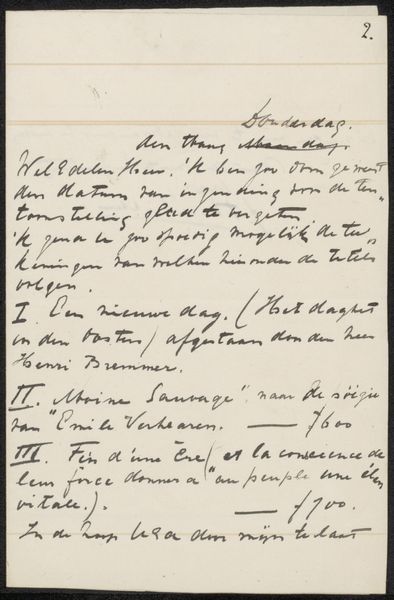 2.
Donderdag.
den Haag Maandag.
WelEdelen Heer. 'k ben zoo dom geweest
den datum van inzending voor de ten„
toonstelling glad te vergeten
'k zend U zoo spoedig mogelijk de tee„
keningen van welken hieronder de titels
volgen.
I. Een nieuwe dag. (Het daghet
in den Oosten) afgestaan door den heer
Henri Bremmer.
II. Moine Sauvage" naar de
van "Emile Verhaeren. — ƒ600
III. Fin d'une Ère (et la conscience de
leur force donnera "au peuple une élan
vitale.). — ƒ700.
In de hoop U Ed door mijn te laat